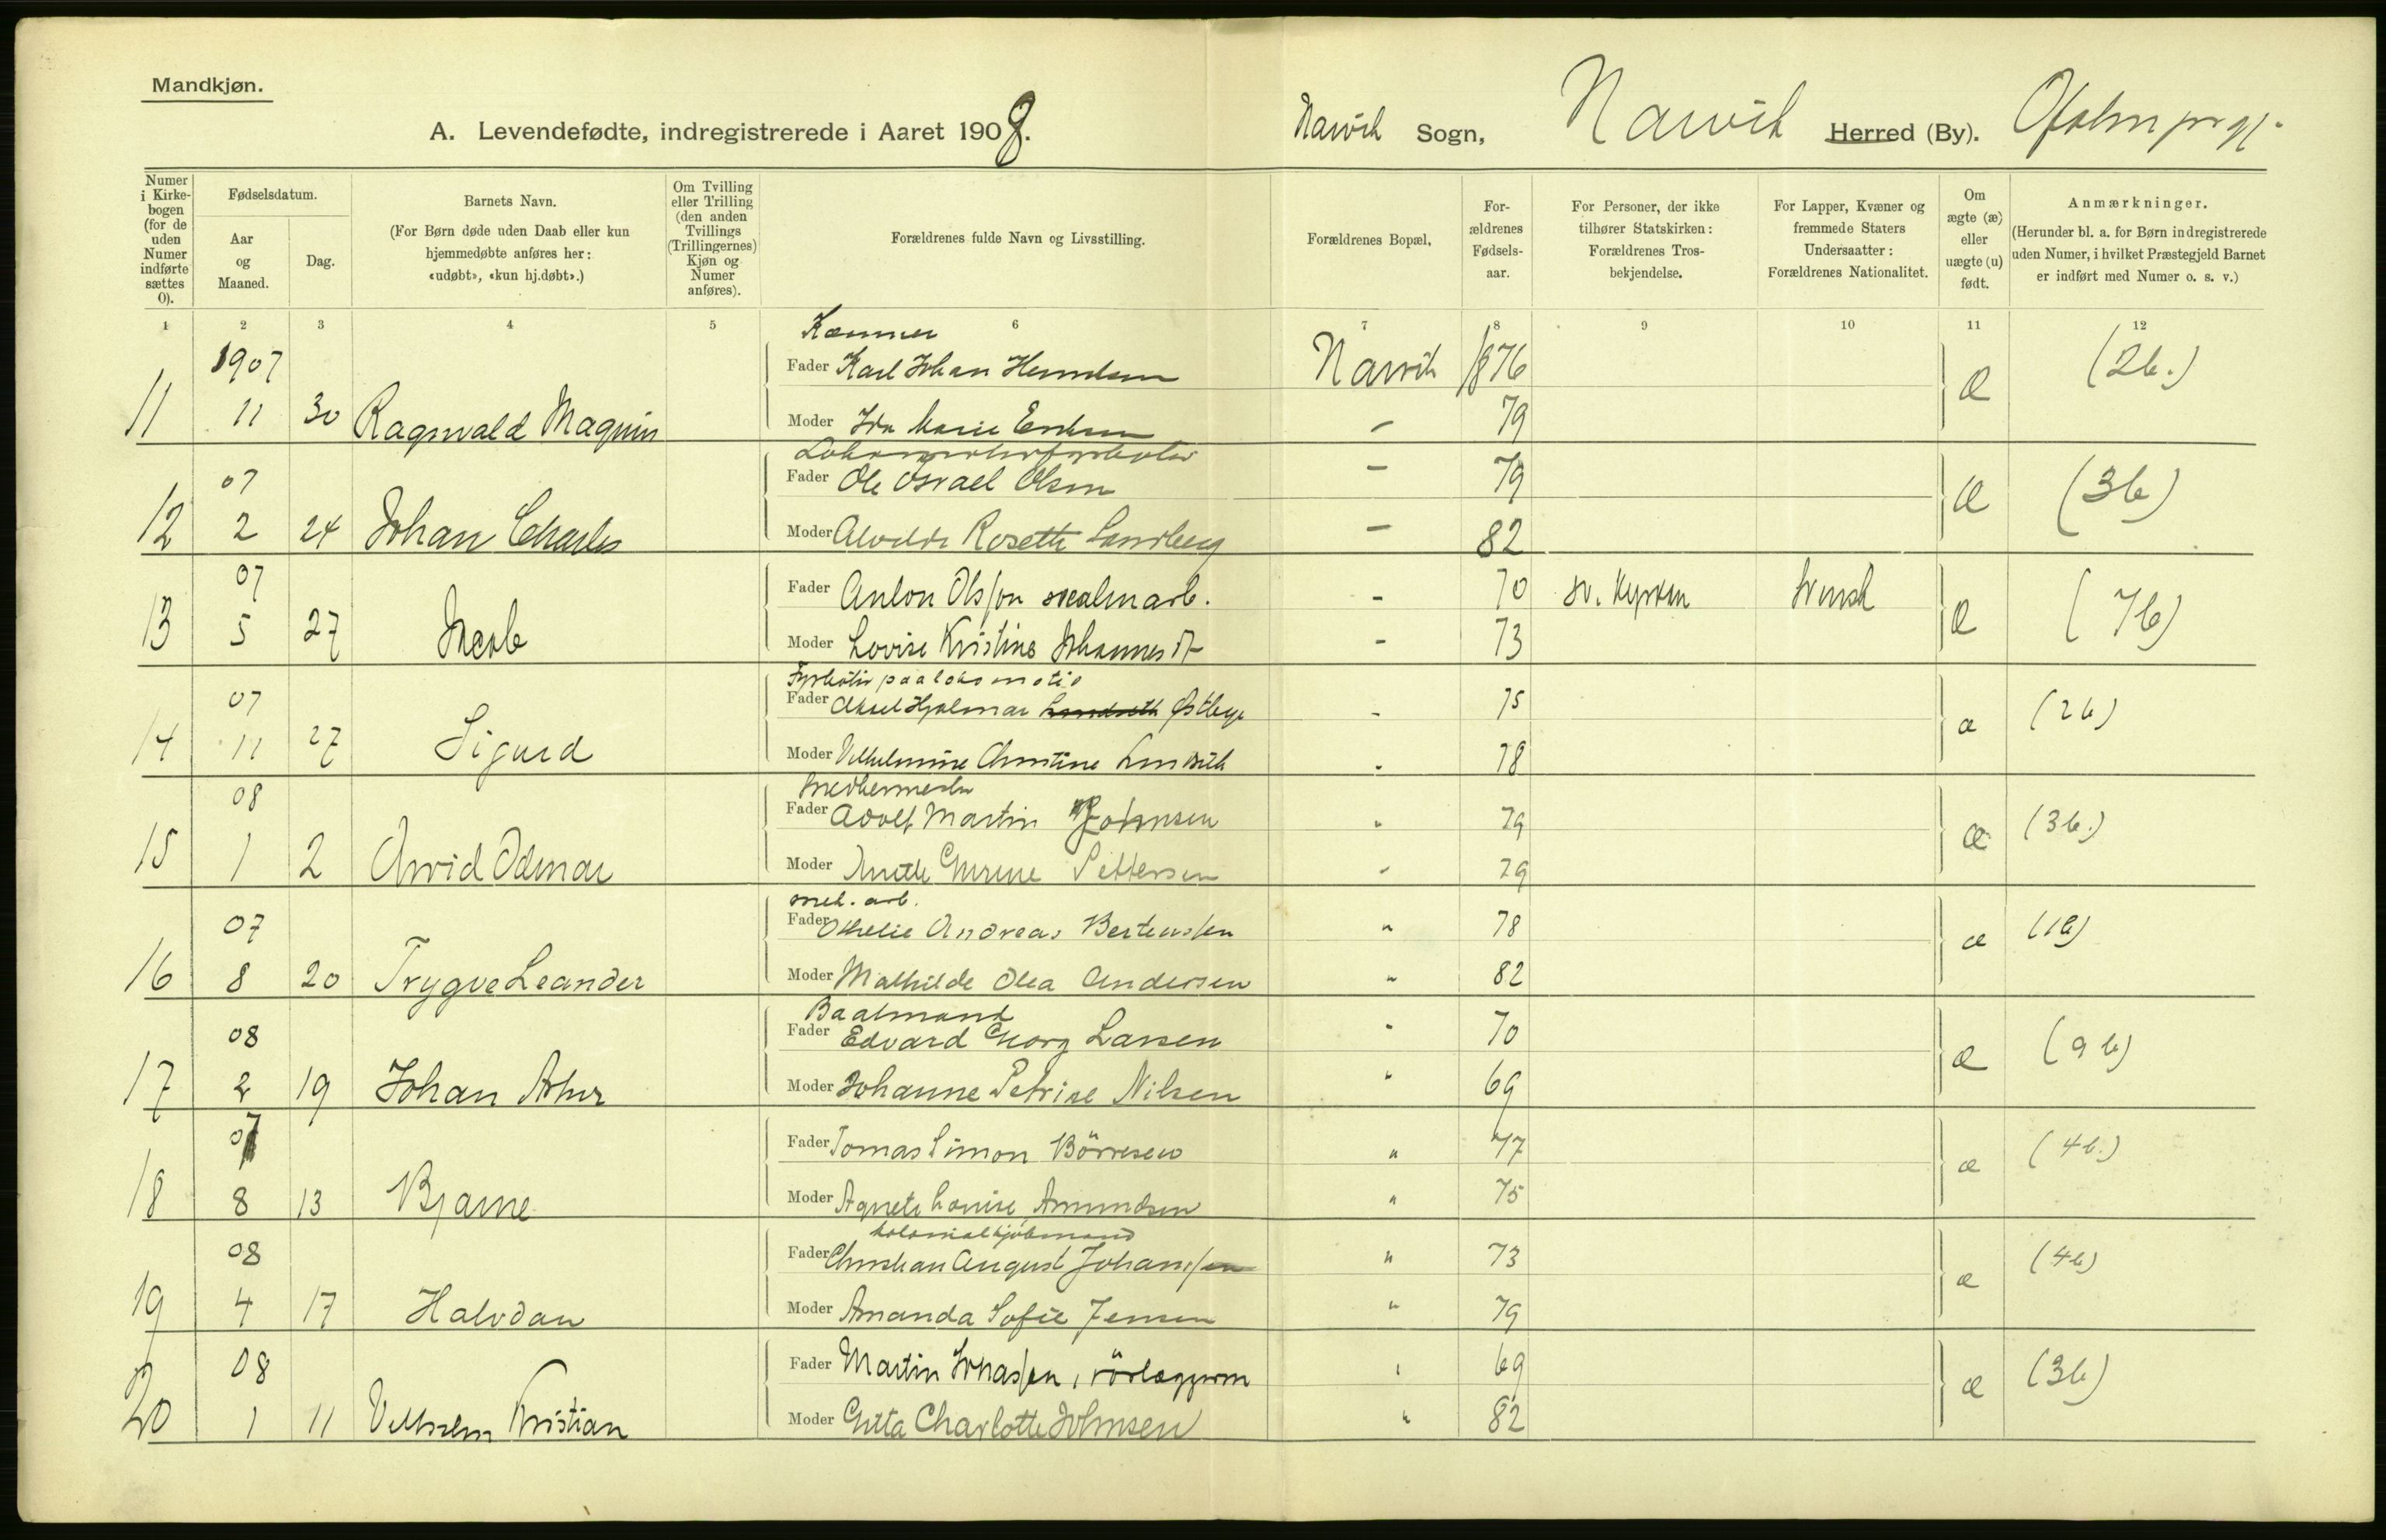 Mandkjøn.
A. Levendefødte, indregistrerede i Aaret 1908. Narvik Sogn, Narvik Herred (By).
Numer i Kirkebogen (for de uden Numer indførte sættes 0).
Fødselsdatum.
Aar og Maaned.
Dag.
Barnets Navn.
(For Børn døde uden Daab eller kun hjemmedøbte anføres her: «udøbt», «kun hj.døbt».)
Om Tvilling eller Trilling (den anden Tvillings (Trillingernes) Kjøn og Numer anføres).
Forældrenes fulde Navn og Livsstilling.
Forældrenes Bopæl,
Forældrenes Fødselsaar.
For Personer, der ikke tilhører Statskirken: Forældrenes Trosbekjendelse.
For Lapper, Kvæner og fremmede Staters Undersaatter: Forældrenes Nationalitet.
Om ægte (æ) eller uægte (u) født.
Anmærkninger.
(Herunder bl. a. for Børn indregistrerede uden Numer, i hvilket Præstegjeld Barnet er indført med Numer o. s. v.)
1 2 3 4 5 6 7 8 9 10 11 12
Kæmner
1907 Fader Karl Johan Narvik 1876 æ (2b.)
11 11 30 Ragnvald Moder Ida Marie - 79
07 Fader Ole Israel Olsen - 79 æ (3b)
12 2 24 Johan Charles Moder Alvilde Rosette Sandberg - 82
07 Fader Anton Olsson malmarb. - 70 sv. kyrkan svensk æ (7b)
13 5 27 Jacob Moder Lovise Kristine - 73
Fyrbøter paa lokomotiv
07 Fader Aksel Hjalmar - 75 æ (2b)
14 11 27 Sigurd Moder Vilhelmine Christine - 78
Snedkermester
08 Fader Adolf Martin Johnsen " 79 æ (3b.)
15 1 2 Arvid Odmar Moder Pettersen - 79
mek. arb.
07 Fader Othelie Andreas Bertenssen " 78 æ (1b)
16 8 20 Trygve Leander Moder Mathilde Olea Andersen " 82
Baatmand
08 Fader Edvard Georg Larsen " 70 æ (9b)
17 2 19 Johan Artur Moder Johanne Petrine Nilsen " 69
07 Fader Tomas Simon Börresen " 77 æ (4b.)
18 8 13 Bjarne Moder Agnete Louise Amundsen " 75
kolonialkjøbmand
08 Fader Christian August Johanssen " 73 æ (4b)
19 4 17 Halvdan Moder Amanda Sofie Jensen " 79
08 Fader Martin " 69 æ (3b)
20 1 11 Vilhelm Kristian Moder Gitta Charlotte Johnsen " 82